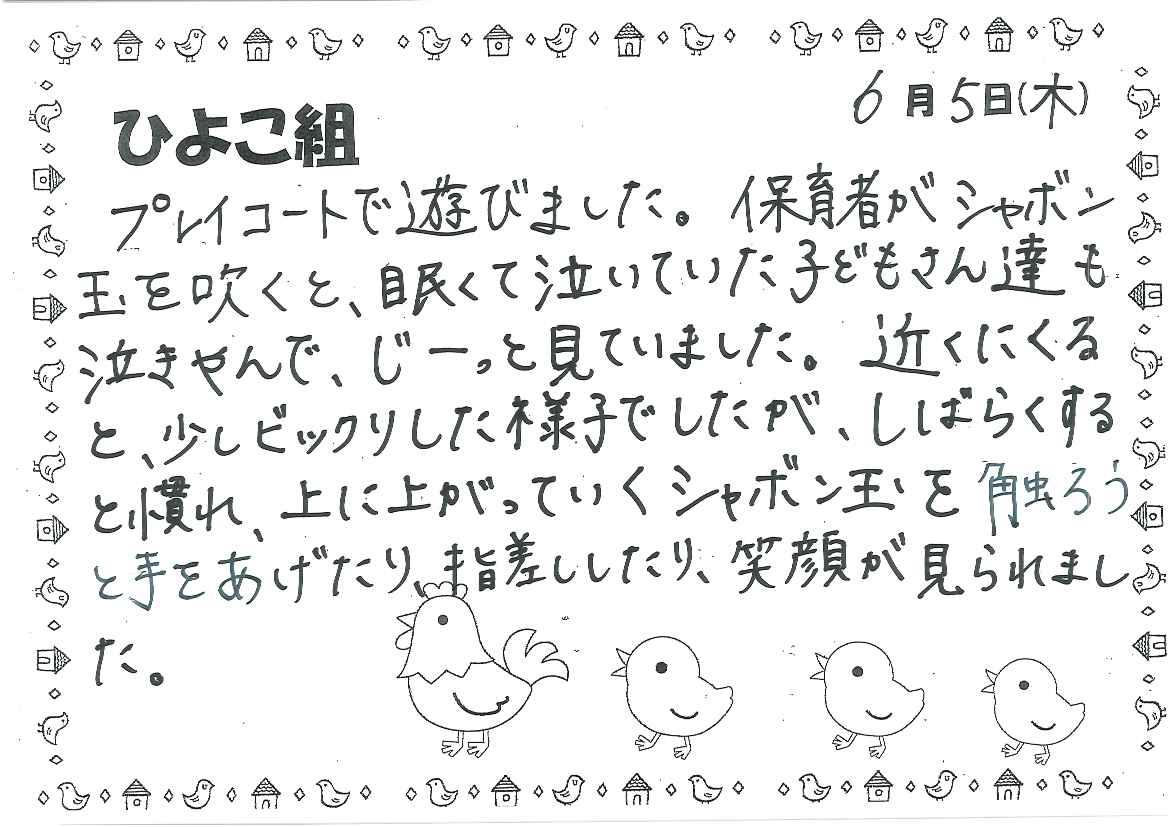 6月5日(木)
ひよこ組
プレイコートで遊びました。保育者がシャボン
玉を吹くと、眠くて泣いていた子どもさん達も
泣きやんで、じーっと見ていました。近くにくる
と、少しビックリした様子でしたが、しばらくする
と慣れ、上に上がっていくシャボン玉を触ろう
と手をあげたり、指差ししたり、笑顔が見られまし
た。